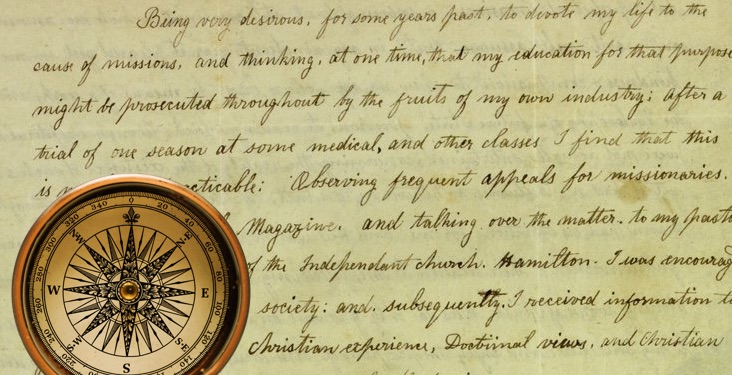 Being very desirous, for some years past, to devote my life to the
cause of missions, and thinking, at one time, that my education for that purpose
might be prosecuted throughout by the fruits of my own industry; after a
trial of one season at some medical, and other classes I find that this
is practicable: Observing frequent appeals for missionaries.
Magazine, and talking over the matter to my past
of the Independant church. Hamilton - I was encourag
society: and subsequently, I received information t
Christian experience, Doctrinal views, and Christian
0 20 40 60 80 100 120 140 220 240 260 280 300 320 340
NW NE
W E
S.W S.E
S